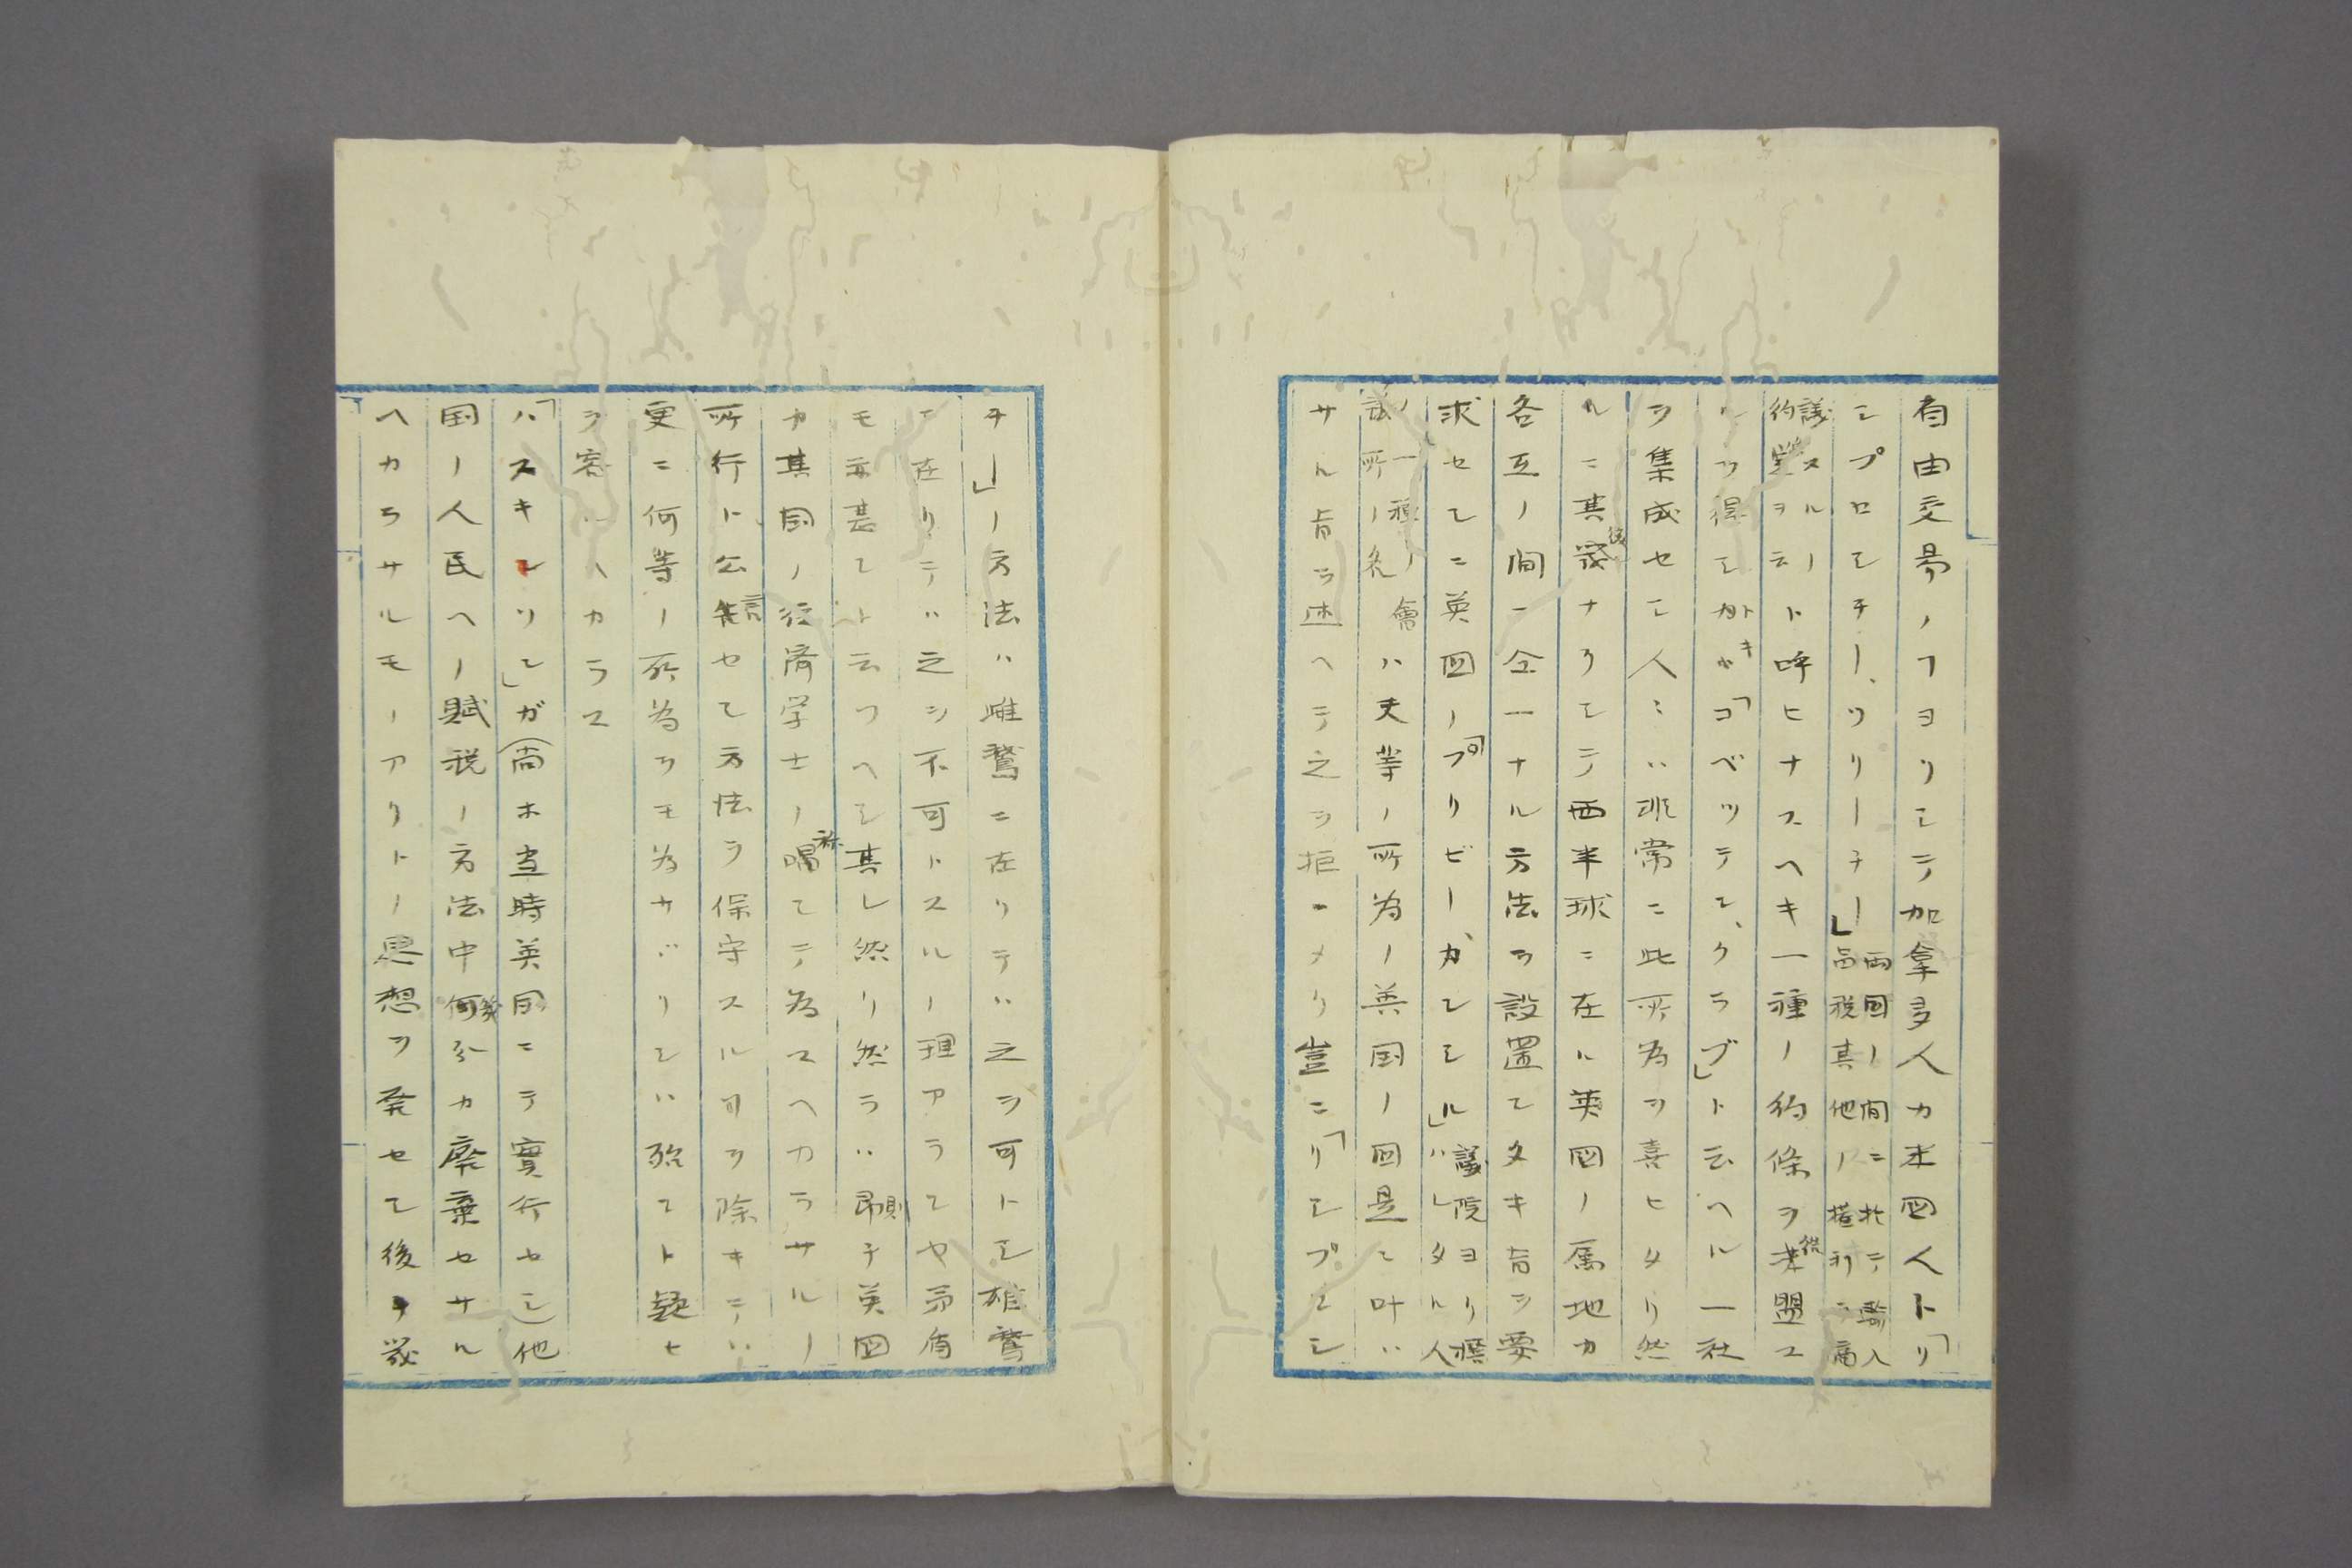 自由交易ノフヨリシテ加拿多人カ米国人ト「リ
シプロシチー、ツリーチー」両國ノ間ニ於テ輸入品税其他ノ権利ヲ商
議スルノ約定ヲ云ト呼ヒナスヘキ一種ノ約條ヲ結盟ス
ルヲ得シトキ「コベツデン、クラブ」ト云ヘル一社
ヲ集成セシ人々ハ非常ニ此所為ヲ喜ヒタリ然
ルニ其後チナクシテ西半球ニ在ル英国ノ属地カ
各互ノ間ニ仝一ナル方法ヲ設置シタキ旨ヲ要
求セシニ英国ノ「プリビー、カシシル」議院ヨリ撰ハレタル人
ノ一種ノ會ハ夫等ノ所為ノ英国ノ国是ニ叶ハ
サル旨ヲ述ヘテ之ヲ拒メリ豈ニ「リシプロシ
チー」ノ方法ハ雌鵞ニ在リテハ之ヲ可トシ雄鵞
ニ在リテハ之ヲ不可トスルノ理アランヤ矛盾
モ亦甚シト云フヘシ其レ然リ然ラハ則チ英国
カ其国ノ経済学士ノ称シテ為スヘカラサルノ
所行ト公言セシ方法ヲ保守スル可ヲ除キテハ
更ニ何等ノ所為ヲモ為サヾリシハ殆ント疑ヒ
ヲ容ルヘカラス
「ハスキソン」ガ(尚ホ当時英国ニテ實行セシ)他
国ノ人民ヘノ賦税ノ方法中幾分カ廃棄セサル
ヘカラサルモノアリトノ思想ヲ発セシ後チ幾